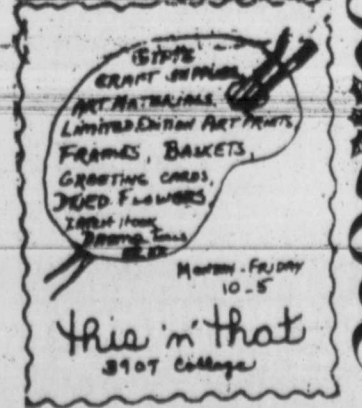 GIFTS
CRAFT SUPPLIES,
ART MATERIALS,
LIMITED EDITION ART PRINTS,
FRAMES, BASKETS,
GREETING CARDS,
DRIED FLOWERS,
LATCH HOOK
MONDAY-FRIDAY
10-5
this 'n' that
3907 College